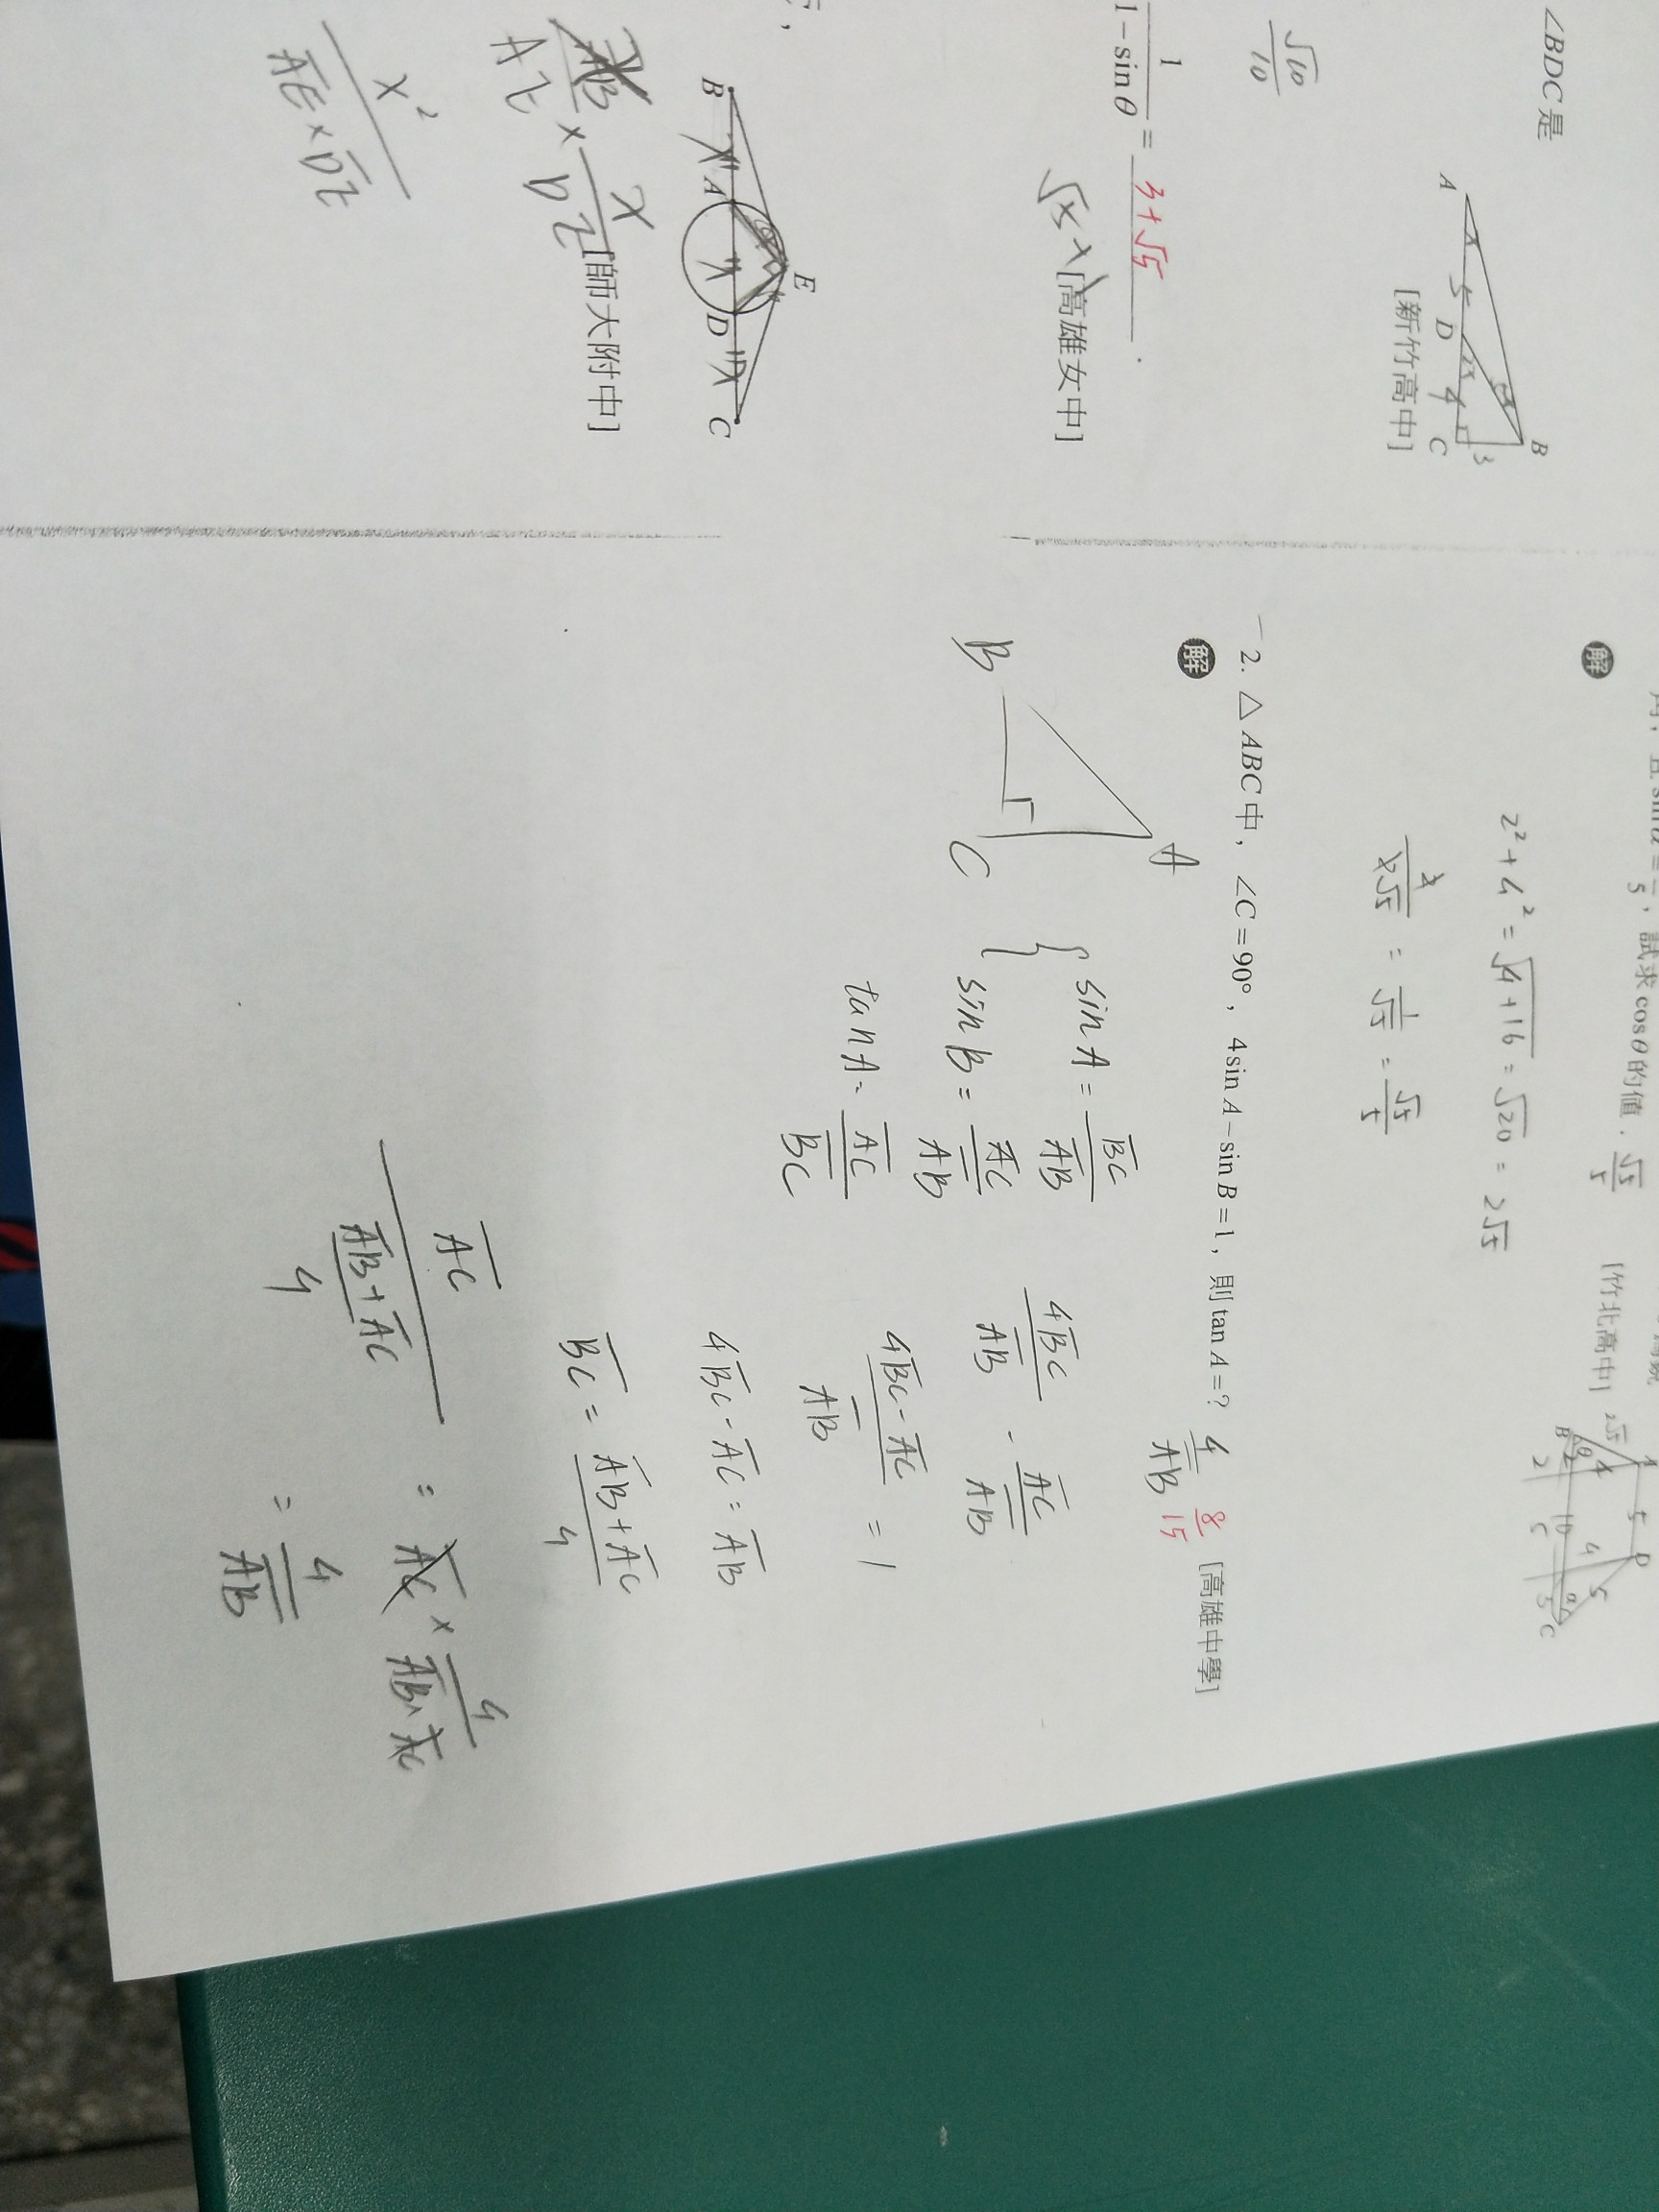 ∠BDC是
A
5
D
4
C
3
B
[新竹高中]
√10/10
1/(1-sinθ) = 3+√5 .
[高雄女中]
B
A
D
C
E
[師大附中]
x/DE
x²/(AE×DE)
試求cosθ的值.√5/5
[竹北高中]
解
2²+4²=√(4+16)=√20=2√5
x/(x√5) = 1/√5 = √5/5
2. △ABC中,∠C=90°,4sinA-sinB=1,則tanA=? 4/AB 8/15 [高雄中學]
解
A
B
C
sinA=BC/AB
sinB=AC/AB
tanA=AC/BC
4BC/AB - AC/AB
(4BC-AC)/AB = 1
4BC-AC=AB
BC=(AB+AC)/4
AC/((AB+AC)/4) = AC × 4/(AB+AC)
= 4/AB